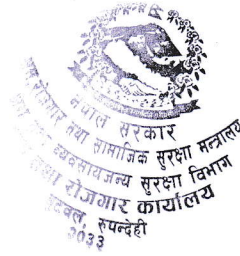 नेपाल सरकार
श्रम रोजगार तथा सामाजिक सुरक्षा मन्त्रालय
श्रम तथा व्यवसायजन्य सुरक्षा विभाग
रोजगार कार्यालय
बुटवल, रुपन्देही
२०३३